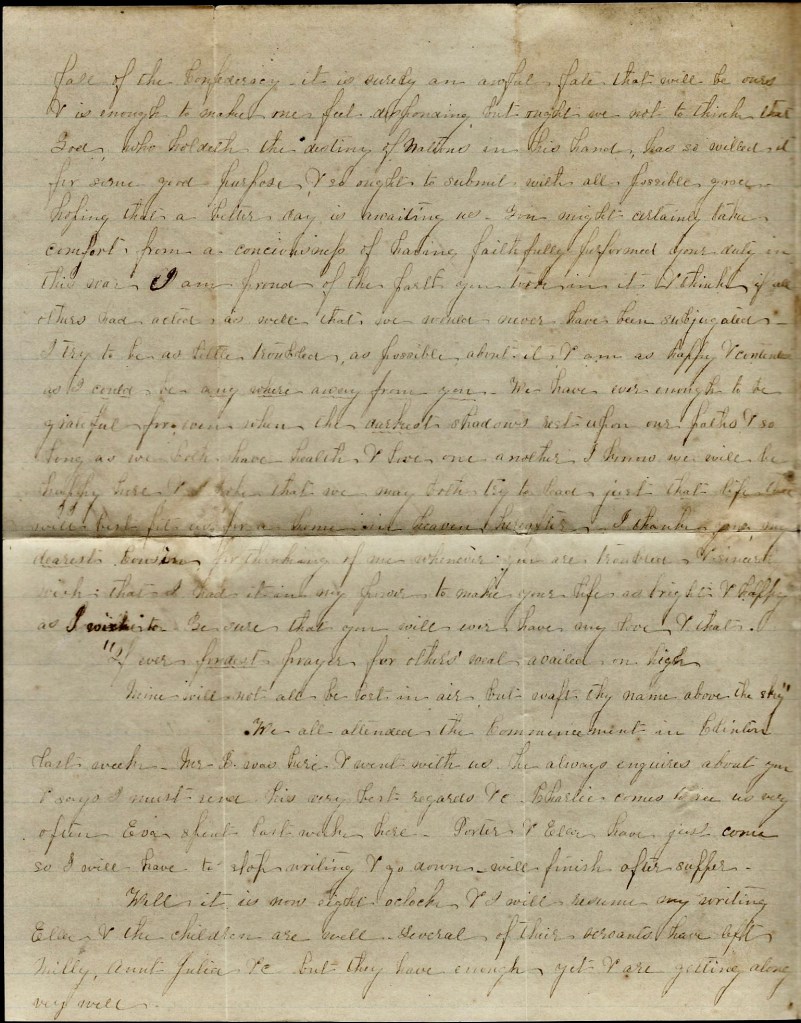 fall of the Confederacy - it is surely an awful fate that will be ours
& is enough to make one feel desponding, but ought we not to think that
God, who holdeth the destiny of Nations in his hand, has so willed it
for some good purpose, & so ought to submit with all possible grace -
hoping that a better day is awaiting us. You might certainly take
comfort from a conciousness of having faithfully performed your duty in
this war, I am proud of the part you took in it & think if all
others had acted as well that we would never have been subjugated -
I try to be as little troubled, as possible about it & am as happy & content
as I could be any where away from you - We have ever enough to be
grateful for, even when the darkest shadows rest upon our paths & so
long as we both have health & love one another I know we will be
happy here & I hope that we may both try to lead just that life
will best fit us for a home in heaven hereafter - I thank you, my
dearest Cousin for thinking of me whenever you are troubled &
wish that I had it in my power to make your life as bright & happy
as I wish to. Be sure that you will ever have my love & that.
"If ever fondest prayer for others' weal availed on high
Mine will not all be lost in air but waft thy name above the sky"
We all attended the Commencement in Edinton
last week - Mr B. was here & went with us - he always enquires about you
& says I must send his very best regards &c - Charlie comes to see us very
often Esq. spent last week here - Porter & Ellen have just come
so I will have to stop writing & go down - will finish after supper -
Well it is now eight oclock & I will resume my writing
Ellen & the children are well - Several of their servants have left
Milly, Aunt Julia &c but they have enough yet & are getting along
very well -